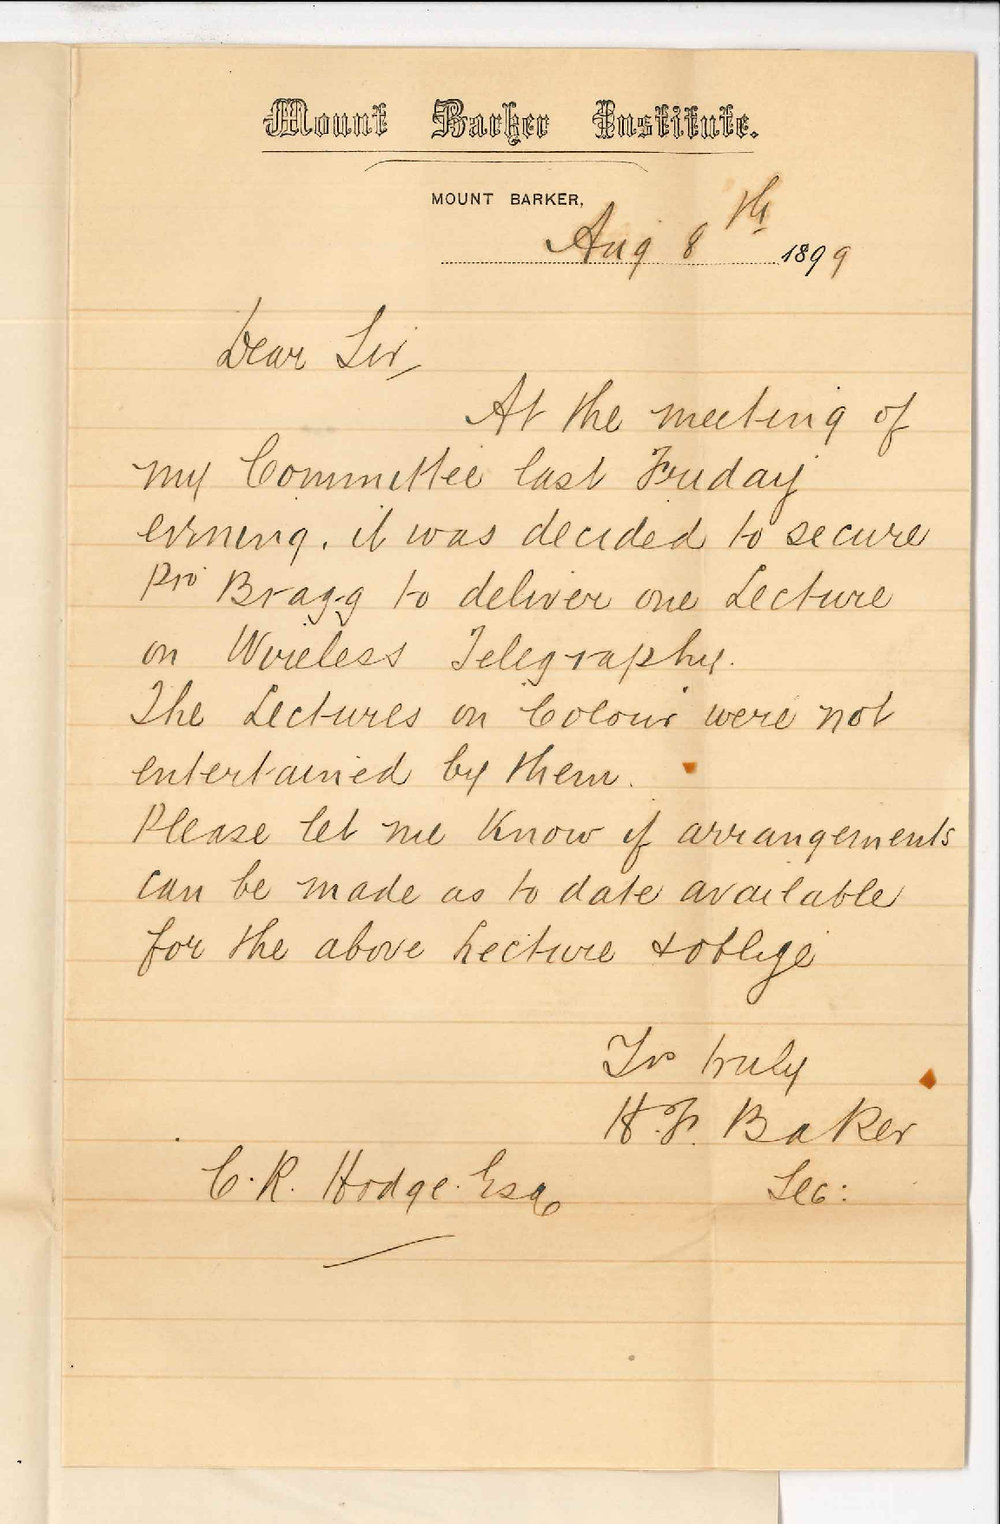 Mount Barker Institute.
MOUNT BARKER,
Aug 8th 1899
Dear Sir,
At the meeting of
my Committee last Friday
evening, it was decided to secure
Pro Bragg to deliver one Lecture
on Wireless Telegraphy.
The Lectures on Colour were not
entertained by them.
Please let me know if arrangements
can be made as to date available
for the above Lecture & oblige
Yrs truly
H. F. Baker
C. R. Hodge Esq Sec: